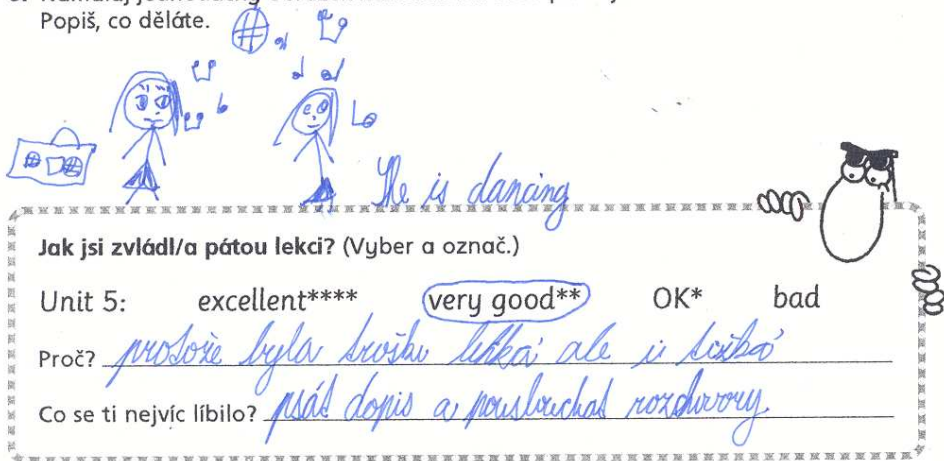 Popiš, co děláte.
He is dancing
Jak jsi zvládl/a pátou lekci? (Vyber a označ.)
Unit 5: excellent**** very good** OK* bad
Proč? protože byla trošku lehká ale i težká
Co se ti nejvíc líbilo? psát dopis a poslouchat rozhovory.